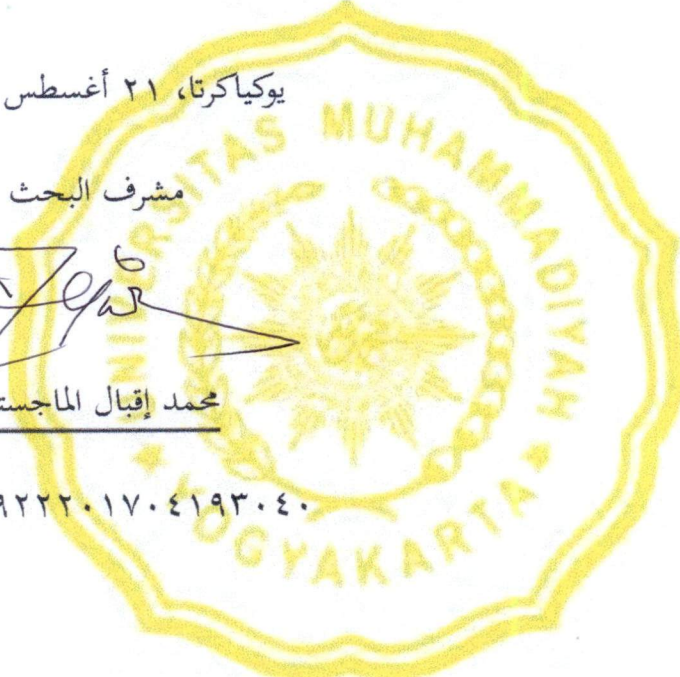 يوكياكرتا، ٢١ أغسطس
مشرف البحث
محمد إقبال
٩٢٢٢٠١٧٠٤١٩٣٠٤٠
UNIVERSITAS MUHAMMADIYAH
YOGYAKARTA